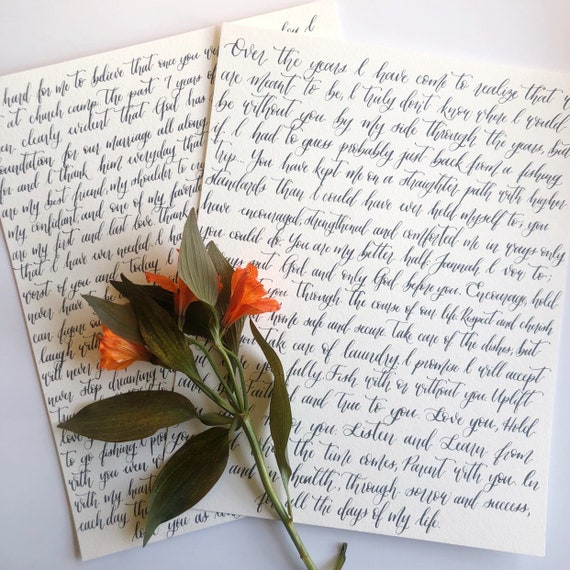 hard for me to believe that once you we
at church camp the past 7 years of
en clearly evident that God has
oundation for our marriage all along
for and I thank him everyday that
are my best friend, my shoulder to cry
my confidant, and one of my favorite
are my first and last love than
that I have ever needed. I ha
worst of you and today
never have to be
can figure out
laugh with
will never
never stop dreaming
love you
to go fishing I pro
with you even w
with my heart
each day the
love you as
Over the years I have come to realize that w
are meant to be, I truly don't know where I would
be without you by my side through the years, but
if I had to guess probably just back from a fishing
trip... You have kept me on a straighter path with higher
standards than I could have ever held myself to; you
have encouraged, strengthened and comforted me in ways only
you could do. You are my better half. Jannah, I vow to;
put God and only God before you. Encourage, hold
you through the course of our life. Respect and cherish
home safe and secure. Take care of the dishes, but
you take care of laundry. I promise I will accept
fully. Fish with or without you. Uplift
and true to you. Love you, Hold
you. Listen and Learn from
the time comes, Parent with you. In
and in health, through sorrow and success,
for all the days of my life.